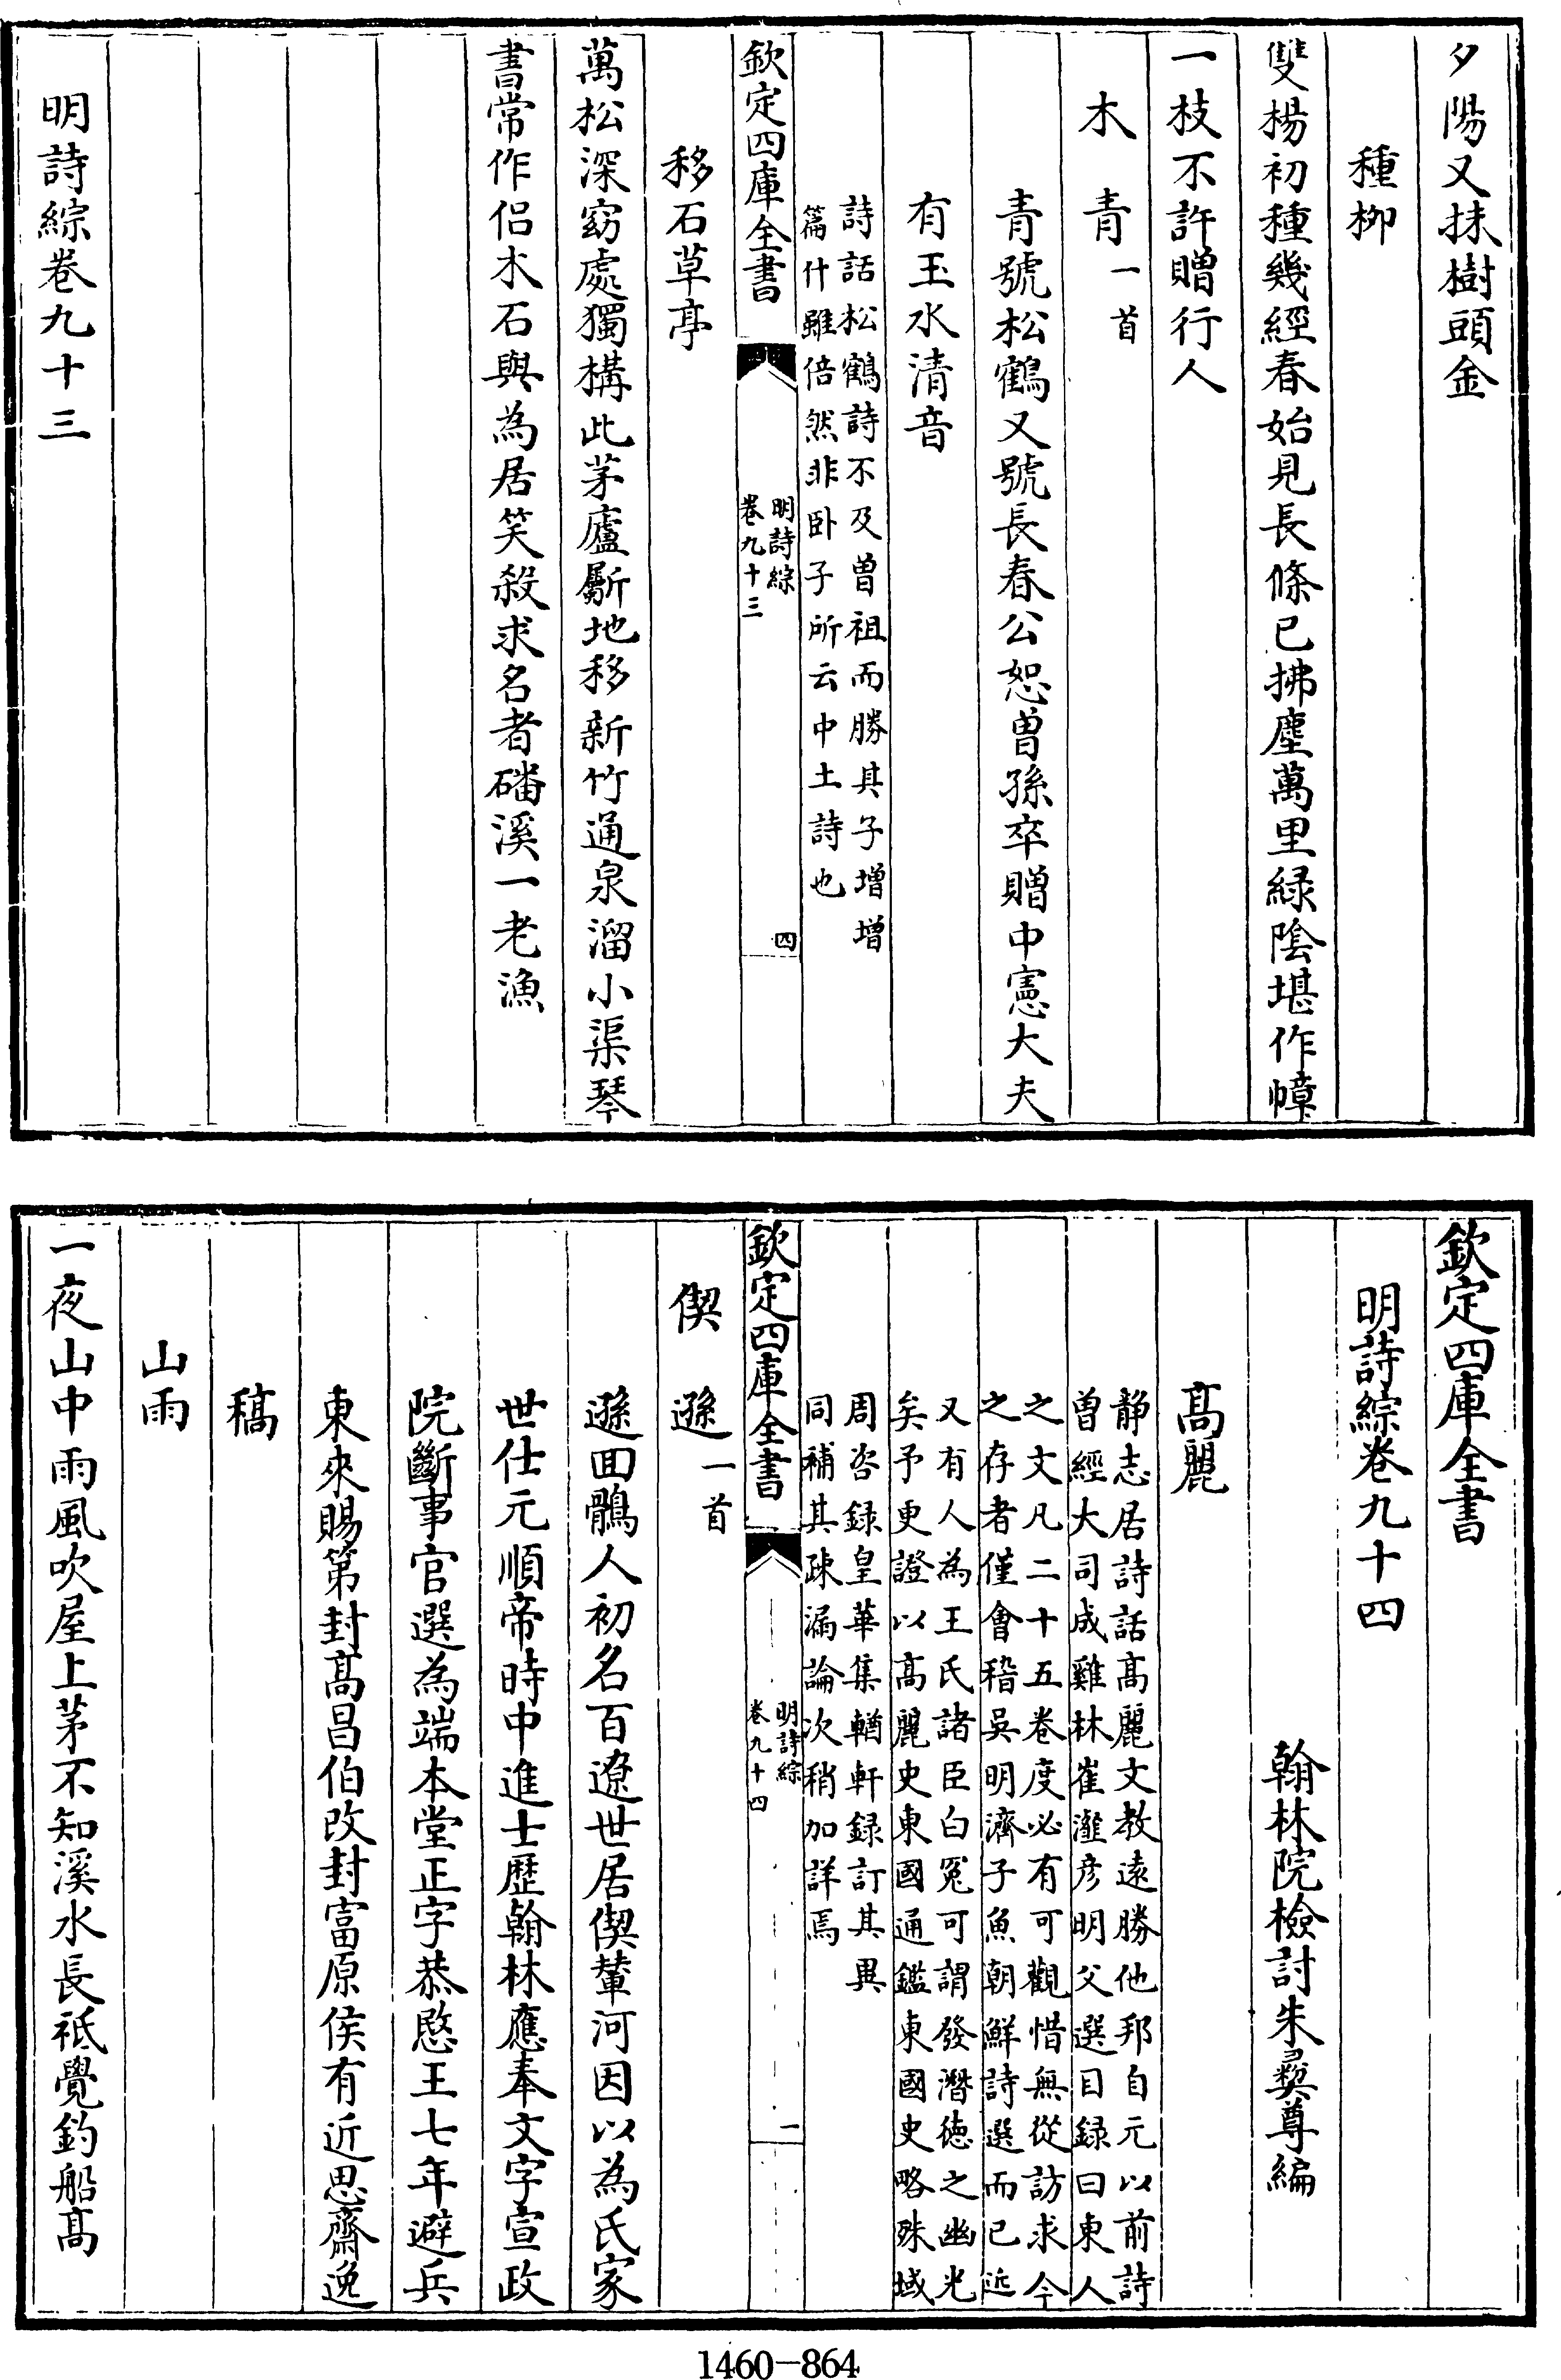 夕陽又抹樹頭金
種柳
雙楊初種幾經春始見長條已拂塵萬里緑陰堪作幛
一枝不許贈行人
木青一首
青號松鶴又號長春公恕曾孫卒贈中憲大夫
有玉水清音
詩話松鶴詩不及曾祖而勝其子增增
篇什雖倍然非卧子所云中土詩也
欽定四庫全書
明詩綜
卷九十三
四
移石草亭
萬松深窈處獨構此茅廬斸地移新竹通泉溜小渠琴
書常作侣木石與為居笑殺求名者磻溪一老漁
明詩綜卷九十三
欽定四庫全書
明詩綜卷九十四
翰林院檢討朱彞尊編
髙麗
静志居詩話髙麗文教遠勝他邦自元以前詩
曾經大司成雞林崔瀣彦明父選目録曰東人
之文凡二十五卷度必有可觀惜無從訪求今
之存者僅會稽吳明濟子魚朝鮮詩選而已近
又有人為王氏諸臣白冤可謂發潛徳之幽光
矣予更證以髙麗史東國通鑑東國史略殊域
周咨録皇華集輶軒録訂其異
同補其疎漏論次稍加詳焉
欽定四庫全書
明詩綜
卷九十四
一
偰遜一首
遜回鶻人初名百遼世居偰輦河因以為氏家
世仕元順帝時中進士歷翰林應奉文字宣政
院斷事官選為端本堂正字恭愍王七年避兵
東來賜第封髙昌伯改封富原侯有近思齋逸
稿
山雨
一夜山中雨風吹屋上茅不知溪水長祗覺釣船髙
1460-864